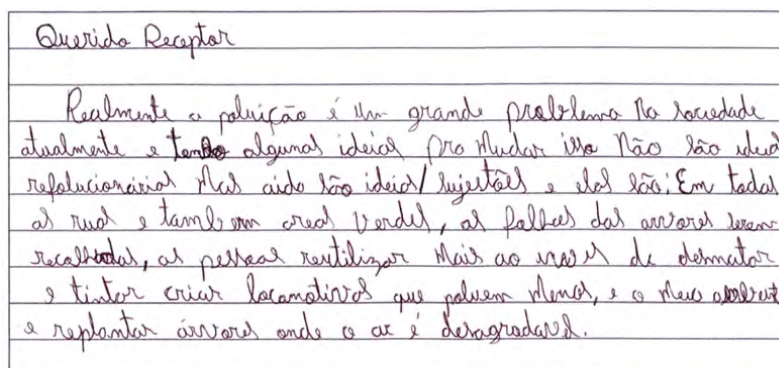 Querido Receptor
Realmente a poluição é um grande problema na sociedade
atualmente e tenho algumas ideias pro mudar isso Não são ideias
refolucionárias Mas aido são ideias/sujestões e elas são: Em todas
as ruas e tambem areas verdes, as folhas das arvores serem
recolhidas, as pessoas reutilizar mais ao invés de desmatar
e tintar criar locomotivas que poluem menos, e o meu
e replantar árvores onde o ar é desagradavel.